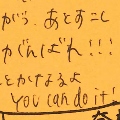 がう。あとすこし
がんばれ!!!
とかけなるよ
You can do it!